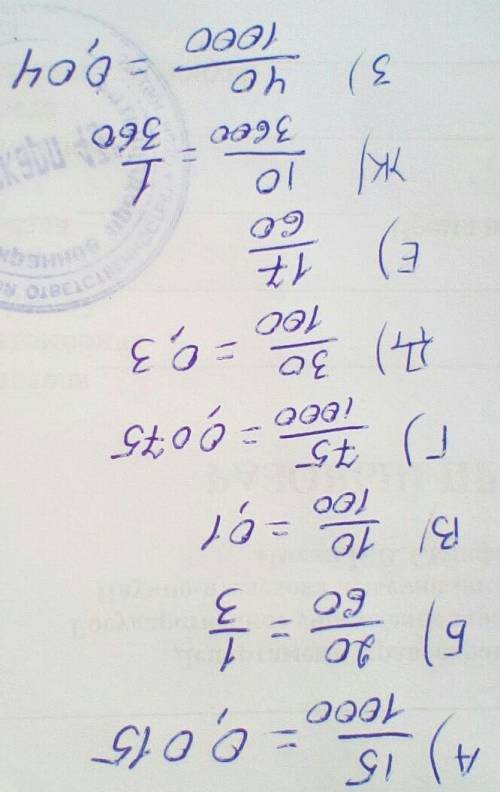 А) 15/1000 = 0,015
Б) 20/60 = 1/3
В) 10/100 = 0,1
Г) 75/1000 = 0,075
Д) 30/100 = 0,3
Е) 17/60
Ж) 10/3600 = 1/360
З) 40/1000 = 0,04